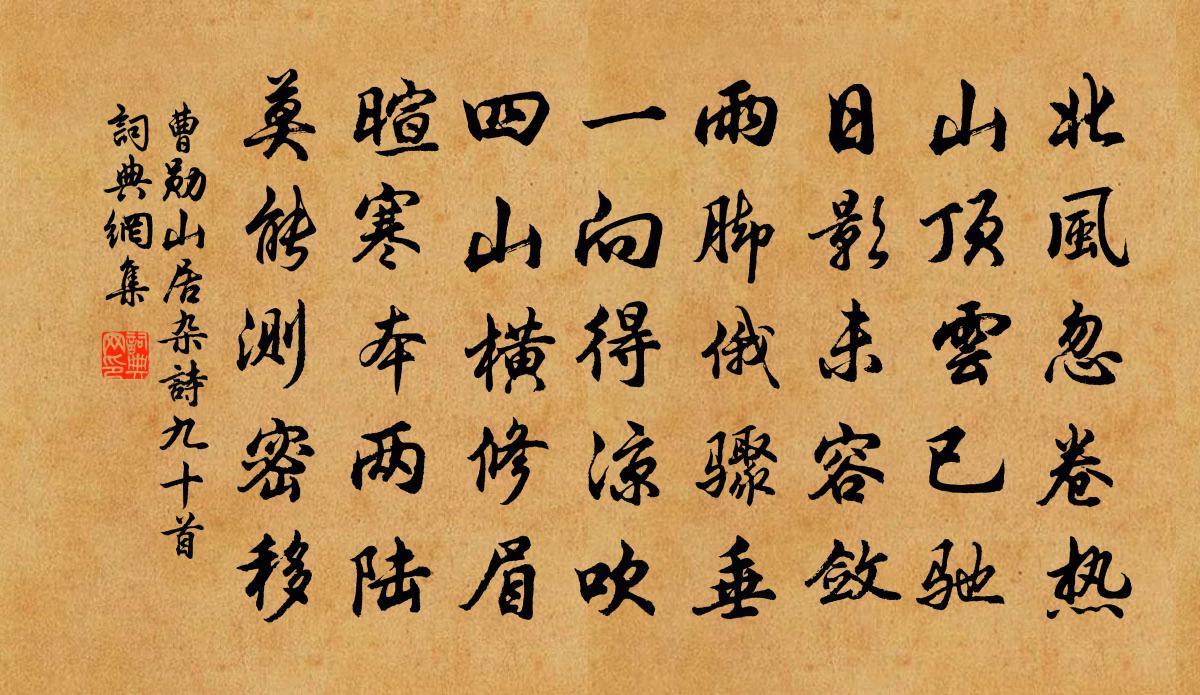 北風忽卷热
山顶雲已驰
日影未容斂
雨脚俄骤垂
一向得凉吹
四山橫修眉
暄寒本两陆
莫能测密移
曹勋山居杂詩九十首
詞典網集
詞典网印